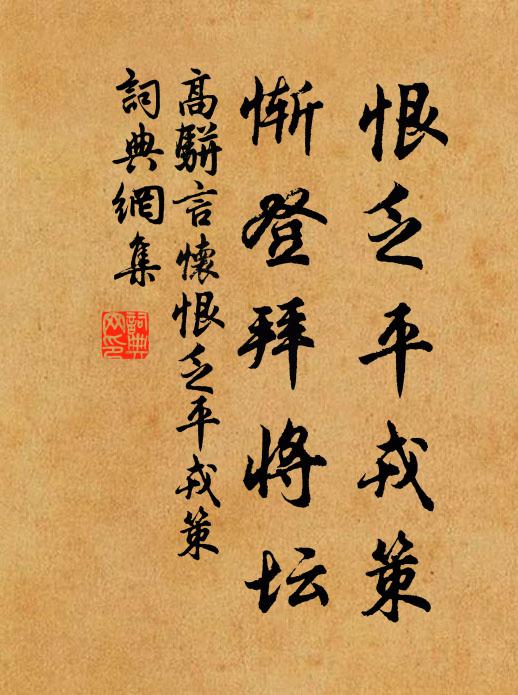 恨乏平戎策
惭登拜将坛
高駢言懷恨乏平戎策
詞典網集
詞典
网印